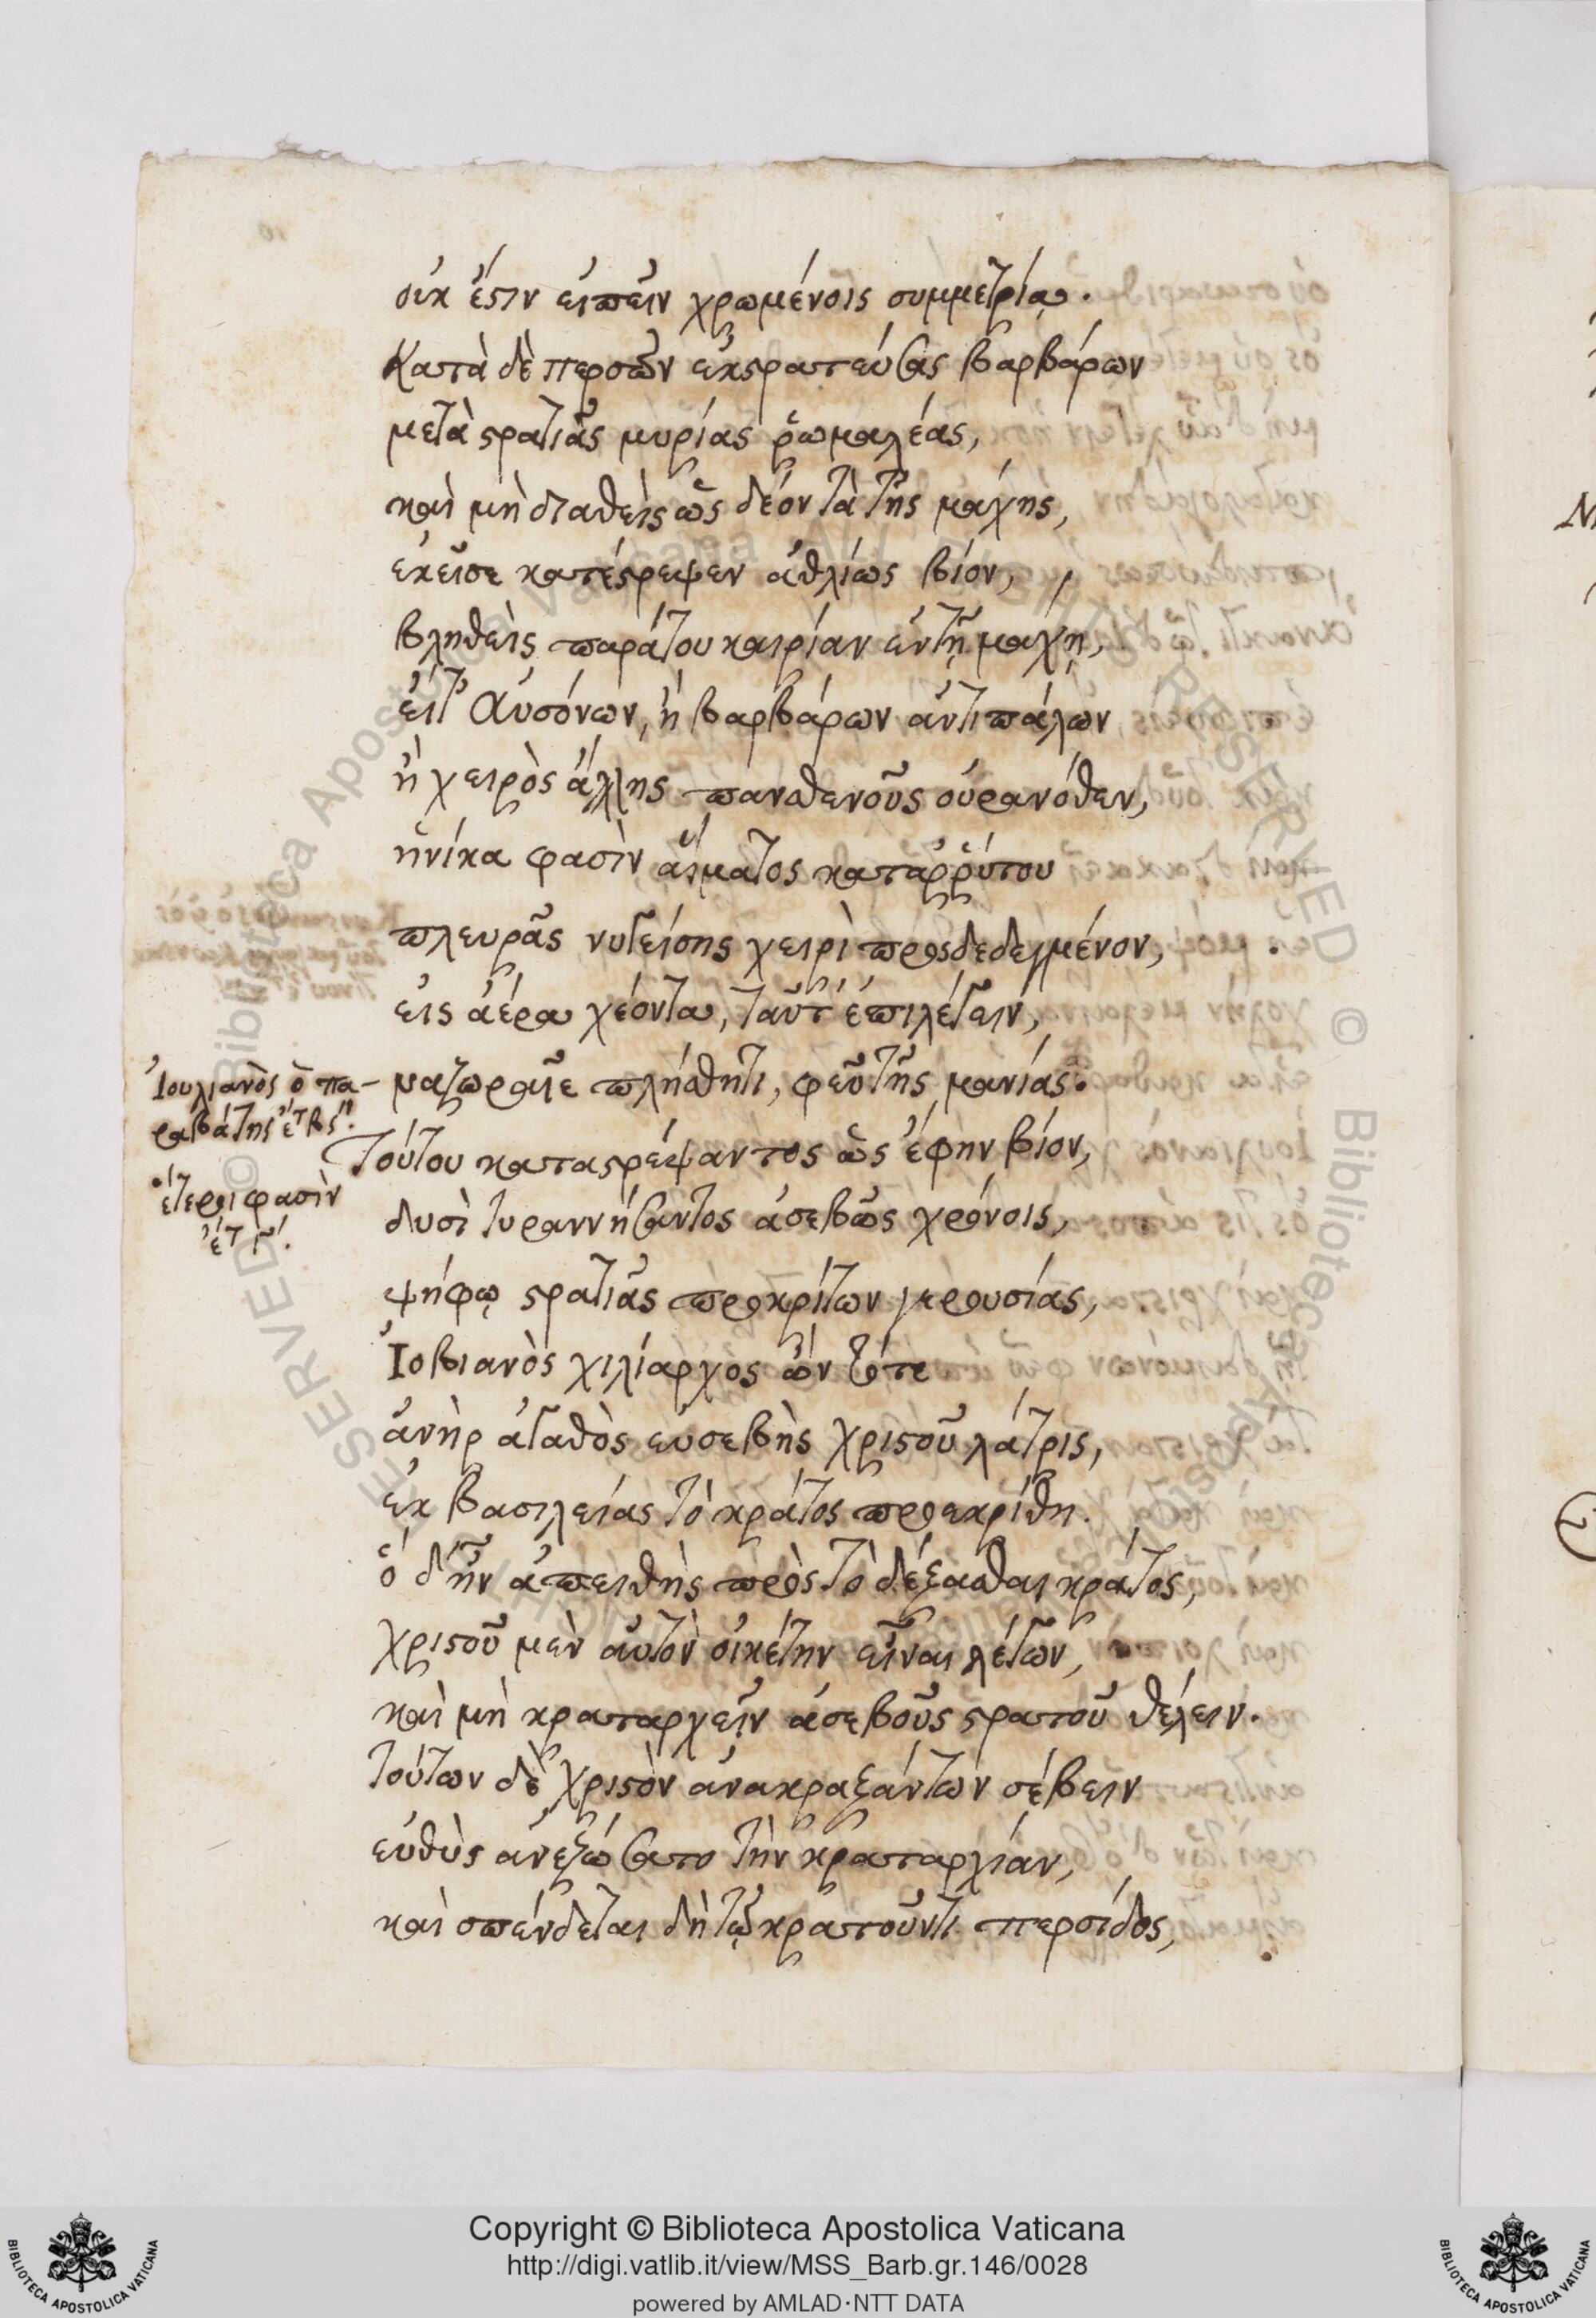 οὐκ ἔστιν εἰπεῖν χρωμένοις συμμετρίᾳ.
Κατὰ δὲ περσῶν ἐκστρατεύσας βαρβάρων
μετὰ στρατιᾶς μυρίας ῥωμαλέας,
καὶ μὴ διαθεὶς ὡς δέον τὰ τῆς μάχης,
ἐκεῖσε κατέστρεψεν ἀθλίως βίον,
βληθεὶς παρά του καιρίαν ἐν τῇ μάχῃ,
εἴτ' Αὐσόνων, ἢ βαρβάρων ἀντιπάλων
ἢ χειρὸς ἄλλης πανσθενοῦς οὐρανόθεν,
ἡνίκα φασὶν αἵματος καταῤῥύτου
πλευρᾶς νυγείσης χειρὶ προσδεδεγμένον,
εἰς ἀέρα χέοντα, ταῦτ' ἐπιλέγειν,
Ἰουλιανὸς ὁ πα-
ραβάτης ἔτ β ϛ''.
ἕτεροι φασὶν
ἔτ γ'.
ναζωραῖε πλήσθητι, φεῦ τῆς μανίας.
Τούτου καταστρέψαντος ὡς ἔφην βίον,
δυσὶ τυραννήσαντος ἀσεβῶς χρόνοις,
ψήφῳ στρατιᾶς προκρίτων γερουσίας,
Ἰοβιανὸς χιλίαρχος ὢν τότε
ἀνὴρ ἀγαθὸς εὐσεβὴς χριστοῦ λάτρις,
ἐκ βασιλείας τὸ κράτος προεκρίθη.
ὁ δ' ἦν ἀπειθὴς πρὸς τὸ δέξασθαι κράτος,
χριστοῦ μὲν αὐτὸν οἰκέτην εἶναι λέγων,
καὶ μὴ κραταρχεῖν ἀσεβοῦς στρατοῦ θέλειν.
τούτων δὲ χριστὸν ἀνακραξάντων σέβειν
εὐθὺς ἀνεζώσατο τὴν κραταρχίαν,
καὶ σπένδεται δὴ τῷ κρατοῦντι περσίδος,
Copyright © Biblioteca Apostolica Vaticana
http://digi.vatlib.it/view/MSS_Barb.gr.146/0028
powered by AMLAD·NTT DATA
BIBLIOTECA APOSTOLICA VATICANA
BIBLIOTECA APOSTOLICA VATICANA